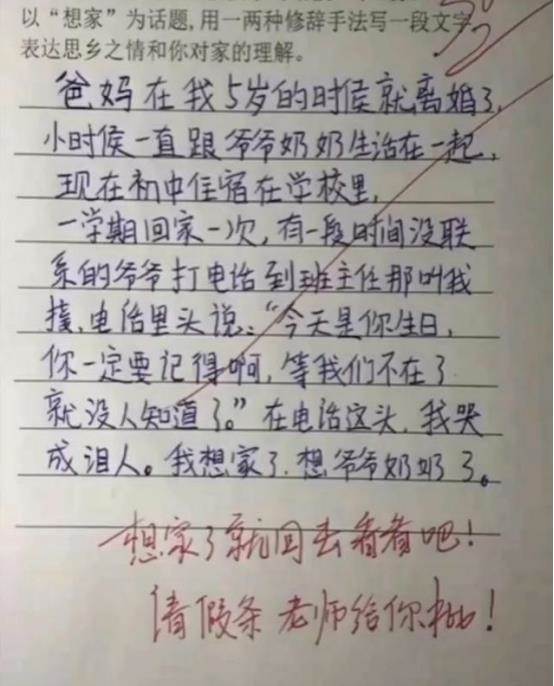 以“想家”为话题,用一两种修辞手法写一段文字
表达思乡之情和你对家的理解。
爸妈在我5岁的时侯就离婚了,
小时侯一直跟爷爷奶奶生活在一起,
现在初中住宿在学校里,
一学期回家一次,有一段时间没联
系的爷爷打电话到班主任那叫我
接,电话里头说:“今天是你生日,
你一定要记得啊,等我们不在了
就没人知道了。”在电话这头,我哭
成泪人。我想家了,想爷爷奶奶了。
想家了就回去看看吧!
请假条老师给你批!